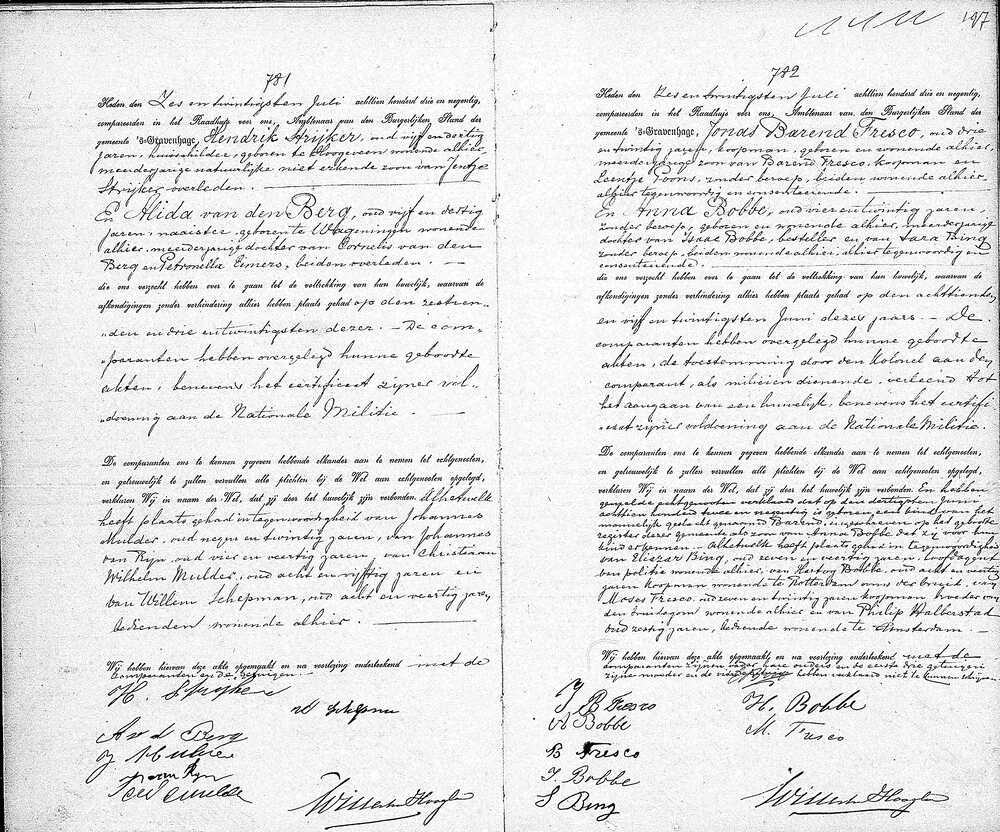 197
781
Heden den Zes en twintigsten Juli achttien honderd drie en negentig,
compareerden in het Raadhuis voor ons, Ambtenaar van den Burgerlijken Stand der
gemeente 's-Gravenhage, Hendrik Strijker, oud vijf en dertig
jaren, huisschilder, geboren te Hoogeveen wonende alhier,
meerderjarige natuurlijke niet erkende zoon van Jentje
Strijker overleden. —
En Alida van den Berg, oud vijf en dertig
jaren, naaister, geboren te Wageningen wonende
alhier, meerderjarige dochter van Cornelis van den
Berg en Petronella Eimers, beiden overleden. —
die ons verzocht hebben over te gaan tot de voltrekking van hun huwelijk, waarvan de
afkondigingen zonder verhindering alhier hebben plaats gehad op den zestien-
den en drie en twintigsten dezer. — De com-
paranten hebben overgelegd hunne geboorte
akten, benevens het certificaat zijner vol-
doening aan de Nationale Militie. —
De comparanten ons te kennen gegeven hebbende elkander aan te nemen tot echtgenooten,
en getrouwelijk te zullen vervullen alle plichten bij de Wet aan echtgenooten opgelegd,
verklaren Wij in naam der Wet, dat zij door het huwelijk zijn verbonden. Alhetwelk
heeft plaats gehad in tegenwoordigheid van Johannes
Mulder, oud negen en twintig jaren, van Johannes
van Rijn oud vier en veertig jaren, van Christiaan
Wilhelm Mulder, oud acht en vijftig jaren en
van Willem Schepman, oud acht en veertig jaren,
bedienden wonende alhier. —
Wij hebben hiervan deze akte opgemaakt en na voorlezing onderteekend met de
comparanten en de getuigen.
H. Strijker
W Schepman
A v d Berg
J Mulder
J van Rijn
C W Mulder
782
Heden den Zes en twintigsten Juli achttien honderd drie en negentig,
compareerden in het Raadhuis voor ons, Ambtenaar van den Burgerlijken Stand der
gemeente 's-Gravenhage, Jonas Barend Fresco, oud drie
en twintig jaren, koopman, geboren en wonende alhier,
meerderjarige zoon van Barend Fresco, koopman en
Leentje Poons, zonder beroep, beiden wonende alhier,
alhier tegenwoordig en consenteerende. —
En Anna Bobbe, oud vier en twintig jaren,
zonder beroep, geboren en wonende alhier, meerderjarige
dochter van Isaac Bobbe, besteller en van Sara Bing
zonder beroep, beiden wonende alhier, alhier tegenwoordig en
consenteerende. —
die ons verzocht hebben over te gaan tot de voltrekking van hun huwelijk, waarvan de
afkondigingen zonder verhindering alhier hebben plaats gehad op den achttienden
en vijf en twintigsten Juni dezes jaars. — De
comparanten hebben overgelegd hunne geboorte
akten, de toestemming door den Kolonel aan den
comparant, als milicien dienende, verleend tot
het aangaan van een huwelijk, benevens het certifi-
caat zijner voldoening aan de Nationale Militie.
De comparanten ons te kennen gegeven hebbende elkander aan te nemen tot echtgenooten,
en getrouwelijk te zullen vervullen alle plichten bij de Wet aan echtgenooten opgelegd,
verklaren Wij in naam der Wet, dat zij door het huwelijk zijn verbonden. En hebben
gemelde echtgenooten verklaard dat op den dertigsten Juni
achttien honderd twee en negentig is geboren een kind van het
mannelijk geslacht genaamd Barend, ingeschreven op het geboorte
register dezer gemeente als zoon van Anna Bobbe dat zij voor hun
kind erkennen. — Alhetwelk heeft plaats gehad in tegenwoordigheid
van Eliazer Bing, oud zeven en veertig jaren, hoofdagent
van politie wonende alhier, van Hartog Bobbe, oud acht en twintig
jaren koopman wonende te Rotterdam ooms der bruid, van
Moses Fresco, oud zeven en twintig jaren koopman broeder van
den bruidegom wonende alhier en van Philip Halberstad
oud zestig jaren, bediende wonende te Amsterdam. —
Wij hebben hiervan deze akte opgemaakt en na voorlezing onderteekend met de
comparanten zijnen vader hare ouders en de eerste drie getuigen
zijne moeder en de vierde getuige hebben verklaard niet te kunnen schrijven
J B Fresco
H. Bobbe
A Bobbe
M. Fresco
B Fresco
I. Bobbe
S Bing